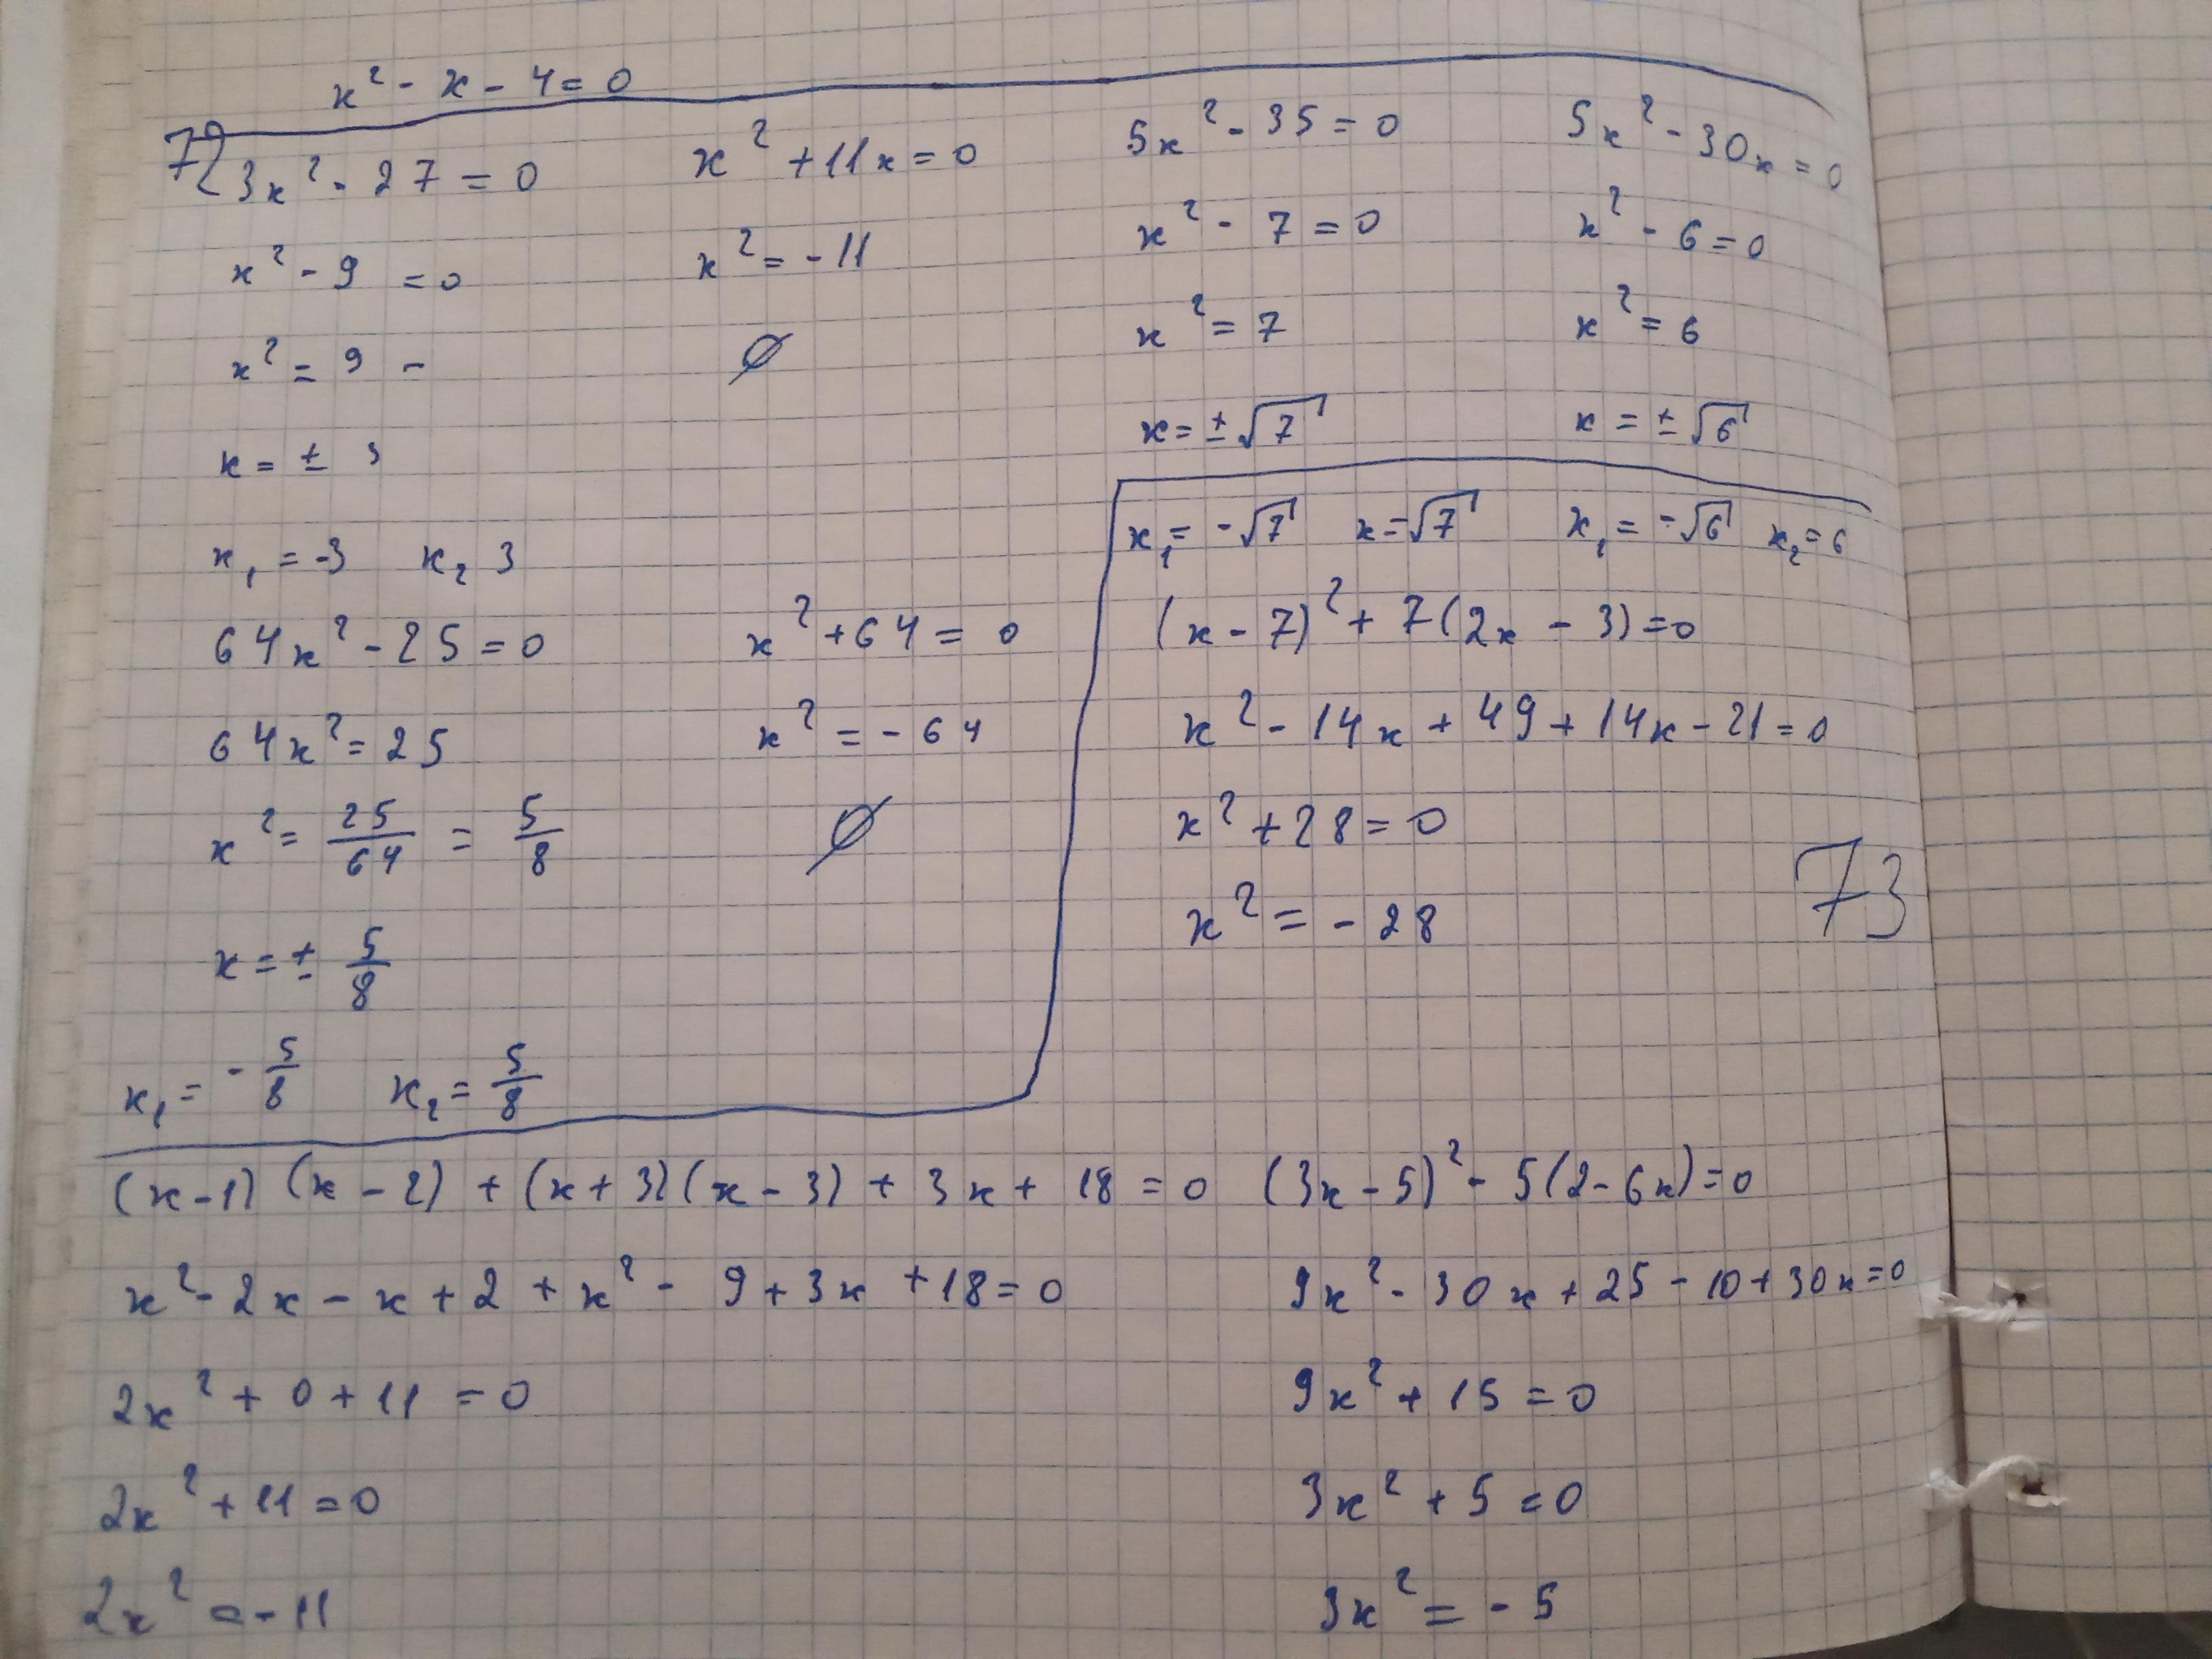 x² - x - 4 = 0
72
3x² - 27 = 0
x² - 9 = 0
x² = 9 -
x = ± 3
x₁ = -3 x₂ 3
x² + 11x = 0
x² = - 11
∅
5x² - 35 = 0
x² - 7 = 0
x² = 7
x = ± √7
x₁ = - √7 x = √7
5x² - 30x = 0
x² - 6 = 0
x² = 6
x = ± √6
x₁ = - √6 x₂ = 6
64x² - 25 = 0
64x² = 25
x² = 25/64 = 5/8
x = ± 5/8
x₁ = - 5/8 x₂ = 5/8
x² + 64 = 0
x² = - 64
∅
73
(x - 7)² + 7(2x - 3) = 0
x² - 14x + 49 + 14x - 21 = 0
x² + 28 = 0
x² = - 28
(x - 1) (x - 2) + (x + 3)(x - 3) + 3x + 18 = 0
x² - 2x - x + 2 + x² - 9 + 3x + 18 = 0
2x² + 0 + 11 = 0
2x² + 11 = 0
2x² = - 11
(3x - 5)² - 5(2 - 6x) = 0
9x² - 30x + 25 - 10 + 30x = 0
9x² + 15 = 0
3x² + 5 = 0
3x² = - 5